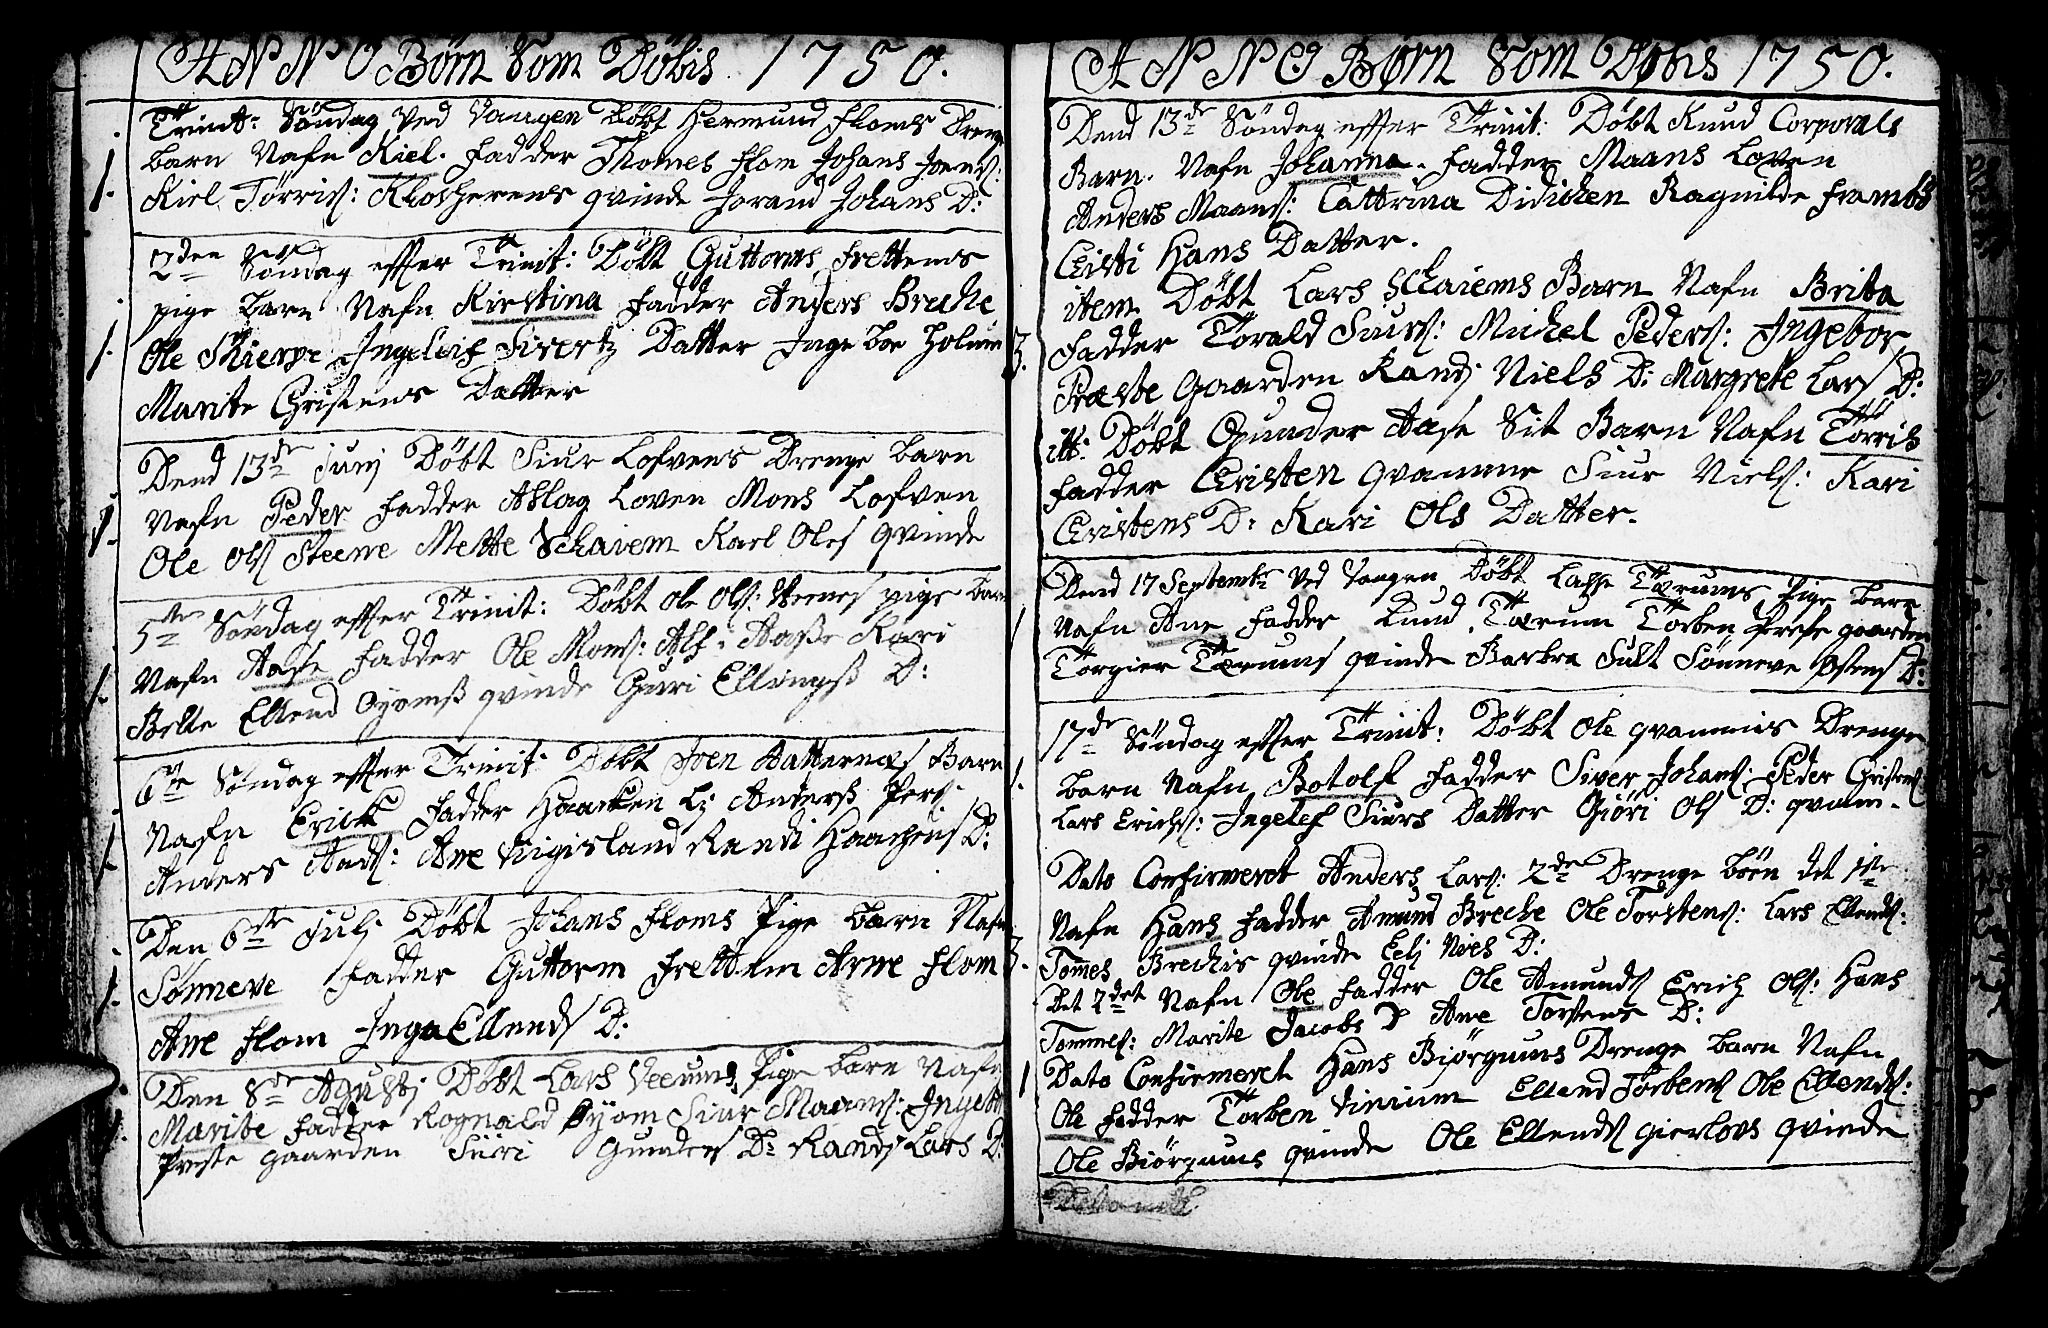 ANNO Børn Som Döbis 1750.
Trinit: Söndag Ved Vangen Döbt Hermund Floms Drenge
barn Nafn Kiel. Fadder Thomes Flom Johans Joens:
1. Kiel Törris: Klocherens qvinde Jorand Johans D:
2den Söndag effter Trinit: Döbt Guttorms Frettems
pige barn Nafn Kirstina Fadder Anders Breche
1. Ole Skierpe Ingeleif Sivertz Datter Inge boe Holum
Marite Christens Datter
Dend 13de Junj Döbt Siur Lofvens Drenge barn
1. Nafn Peder Fadder Aslag Loven Mons Lofven
Ole Ols Steene Mette Schaiem Kael Oles qvinde
5te Söndag effter Trinit: Döbt Ole Ols: pige barn
1. Nafn Aase Fadder Ole Mons: Alf: Aasse Kari
Belle Ellend Oyomss qvinde Guri Ellingss D:
6te Söndag effter Trinit: Döbt Iven Barn
Nafn Erick Fadder Haacken Lj Anderss Pers:
1. Anders Ands: Ane Virgisland Randi Haachens D:
Den 6te Julj Döbt Johans Floms Pige barn Nafn
1. Sönneve Fadder Guttorm Frettem Arne Flom
Ane Flom Inga Ellends D:
Den 8de Agustj Döbt Lars Veeums Pige barn Nafn
1. Marite Fadder Rognald Öyom Siur Maans: Ingebr
Preste gaarden Siiri Gunders D: Randj Lars D:
ANNO Børn Som Döbis 1750.
Dend 13de Söndag effter Trinit: Döbt Knud Corporals
Barn. Nafn Johanna. Fadder Maans Loven
Anders Maans: Cattrina Didichen Ragnilde Frambs
Christi Hans Datter.
item Döbt Lars Schaiems Barn Nafn Brita
3. Fadder Torald Siurs: Michel Peders: Ingebor
Præste Gaarden Randj Niels D: Margrete Lars D:
itt: Döbt Gunder Aase Sit Barn Nafn Törris
Fadder Christen qvamme Siur Niels: Kari
Christens D: Kari Ols Datter.
Dend 17 Septembr Ved Vangen Döbt Lasse Tærums Pige barn
1 Nafn Ane Fadder Knud Tærum Torben Preste gaarden
Torgier Tærums qvinde Barbra Sult Sönneve Ostens D:
17de Söndag effter Trinit: Döbt Ole qvammis Drenge
1. barn Nafn Botolf Fadder Siver Johans: Peder Christens
Lars Erichs: Ingelef Siurs Datter Giöri Ols D: qvam.
Dato Confirmeret Anders Lars: 2de Drenge börn det 1ste
Nafn Hans Fadder Amund Breche Ole Torstens: Lars Ellends:
3. Tommes Brechis qvinde Eelj D:
Det 2det Nafn Ole Fadder Ole Amunds Erich Ols: Hans
Tommes: Marite Jacobs D Ane Torstens D:
1 Dato Confirmeret Hans Biörgums Drenge barn Nafn
Ole Fadder Törben Vinium Ellend Törbens Ole Ellends:
Ole Biörgums qvinde Ole Ellends Gierlovs qvinde